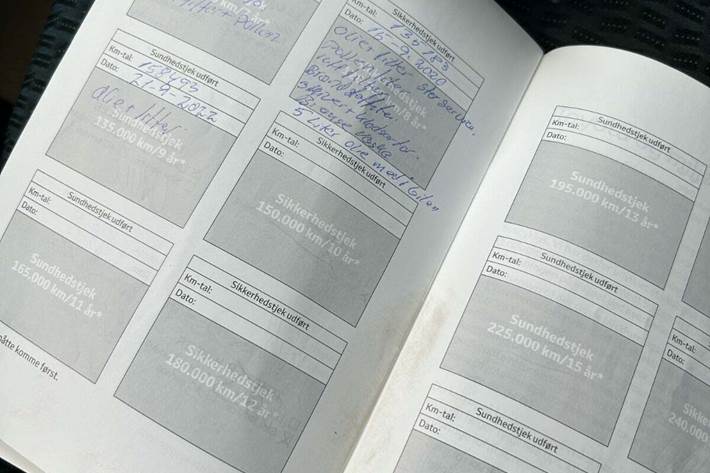 filter + pollen
Sundhedstjek udført
Km-tal: 158493
Dato: 21-4-2022
olie filter
Sundhedstjek
135.000 km/9 år*
Sundhedstjek udført
Km-tal:
Dato:
Sundhedstjek
165.000 km/11 år*
åtte komme først.
Sikkerhedstjek udført
Km-tal:
Dato: 15-9-2020
olie filter stor service
pollen
5 Liter olie
Sikkerhedstjek udført
Km-tal:
Dato:
Sikkerhedstjek
150.000 km/10 år*
Sikkerhedstjek udført
Km-tal:
Dato:
Sikkerhedstjek
180.000 km/12 år*
Sundhedstjek udført
Km-tal:
Dato:
Sundhedstjek
195.000 km/13 år*
Sundhedstjek udført
Km-tal:
Dato:
Sundhedstjek
225.000 km/15 år*
Sundhedstjek udført
Km-tal:
Dato:
Km-tal:
Dato:
Sikke
240.000